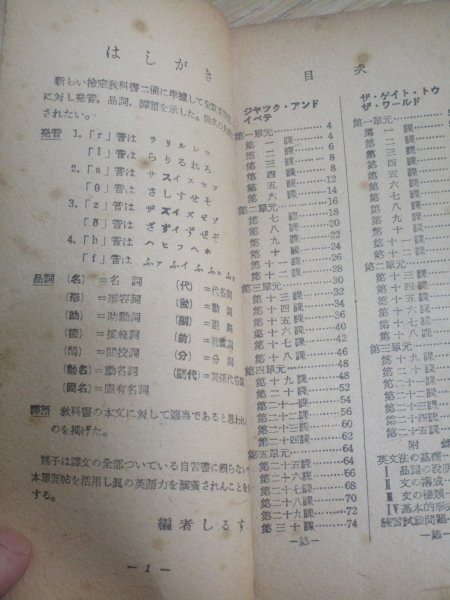 はしがき
新しい檢定教科書二種に準據して全
に対し発音，品詞，譯語を示した。
されたい。
発音 1.「r」音は ラリルレロ
「l」音は らりるれろ
2.「s」音は サスィスセソ
「θ」音は さしすせそ
3.「z」音は ザズィズゼゾ
「ð」音は
4.「h」音は ハヒフヘホ
「f」音は ふァふィふふェふォ
品詞 (名)＝名詞 (代)＝代名詞
(形)＝形容詞 (動)＝動詞
(助)＝助動詞 (副)＝副詞
(接)＝接続詞 (前)＝前置詞
(間)＝間投詞 (分)＝分詞
(動名)＝動名詞 (関代)＝関係代名詞
(固名)＝固有名詞
譯語 教科書の本文に対して適当であると思われ
のを掲げた。
諸子は譯文の全部ついている自習書に頼らない
本單語帖を活用し眞の英語力を涵養されんことを
する。
編者しるす
— 1 —
目次
ジャック・アンド
ベティ
第一單元 4
第一課 4
第二課 6
第三課 8
第四課 10
第五課 12
第六課 14
第二單元 16
第七課 16
第八課 18
第九課 20
第十課 24
第十一課 26
第十二課 28
第三單元 30
第十三課 30
第十四課 32
第十五課 36
第十六課 38
第十七課 42
第十八課 46
第四單元 48
第十九課 48
第二十課 50
第二十一課 52
第二十二課 54
第二十三課 58
第二十四課 62
第五單元 64
第二十五課 64
第二十六課 66
第二十七課 68
第二十八課 70
第二十九課 72
第三十課 74
—終—
ザ・ゲイト・トウ
ザ・ワールド
第一單元
第一課
第二課
第三課
第四課
第五課
第六課
第七課
第八課
第九課
第十課
第十一課
第二單元
第十二課
第十三課
第十四課
第十五課
第十六課
第十七課
第十八課
第三單元
第十九課
第二十課
第二十一課
第二十二課
第二十三課
第二十四課
第二十五課
附錄
英文法の基礎
I 品詞の說明
II 文の構成
III 文の種類
IV 基本的形式
練習試験問題
—終—